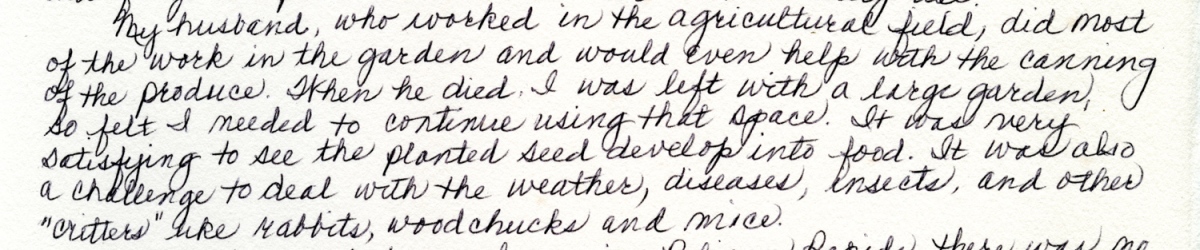 My husband, who worked in the agricultural field, did most
of the work in the garden and would even help with the canning
of the produce. When he died. I was left with a large garden,
so felt I needed to continue using that space. It was very
satisfying to see the planted seed develop into food. It was also
a challenge to deal with the weather, diseases, insects, and other
"critters" like rabbits, woodchucks and mice.
there was no